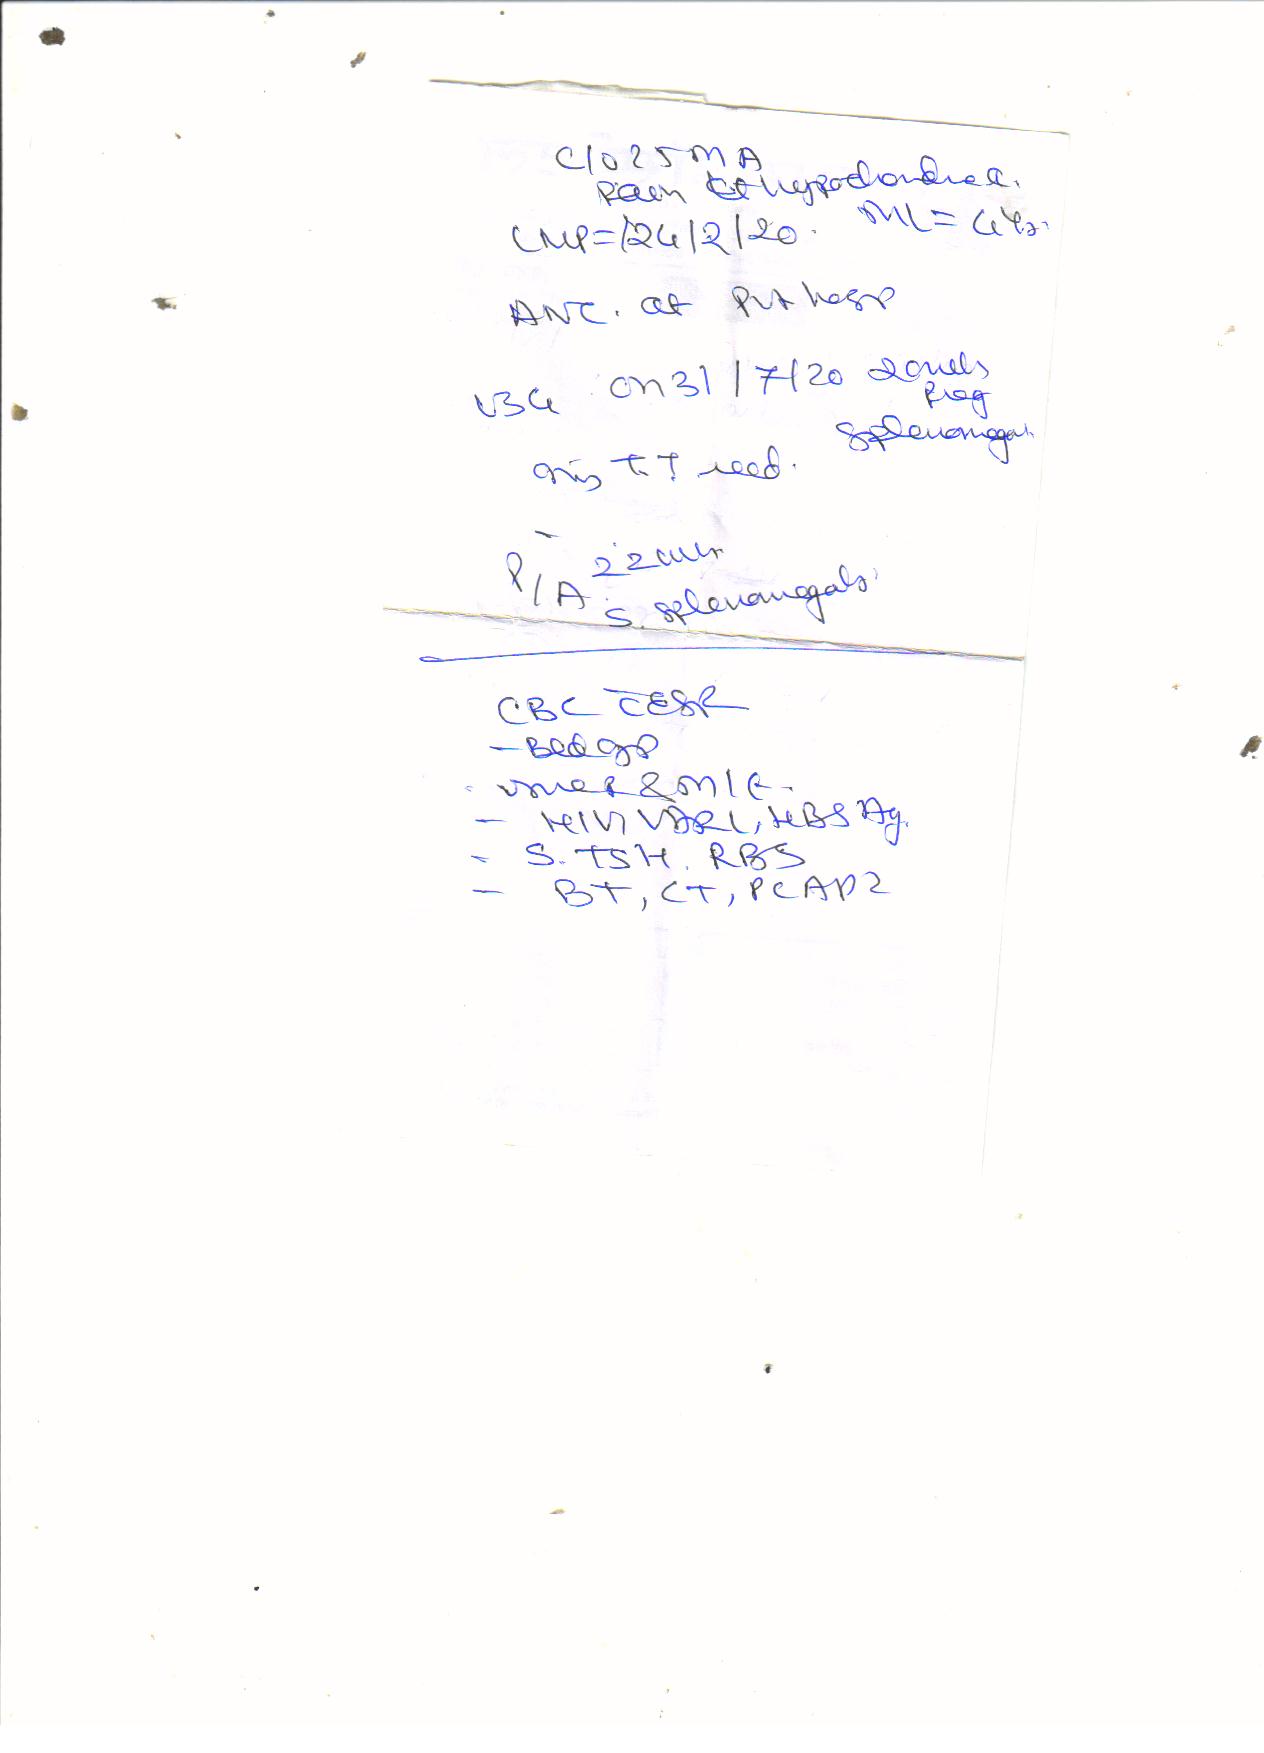 C/O 25 MA
Pain Lt hypochondria.
LMP=/24/2/20. ML = 4 Yr.
ANC. at Pvt hosp
USG on 31/7/20 20 wks
Preg
Splenomegal
TT recd.
P/A 22 wks
S. splenomegaly
CBC C ESR
- Bld gp
- Urine R & M/E.
- HIV, VDRL, HBSAg.
- S. TSH. RBS
- BT, CT,